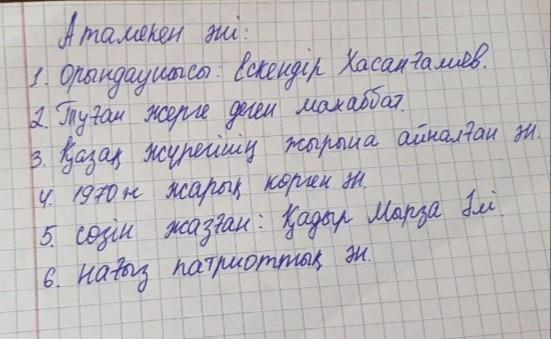 Атамекен әні:
1. Орындаушысы: Ескендір Хасанғалиев.
2. Туған жерге деген махаббат.
3. Қазақ жүрегінің жырына айналған ән.
4. 1970 ж жарық көрген ән.
5. сөзін жазған: Қадыр Мырза Әлі.
6. нағыз патриоттық ән.